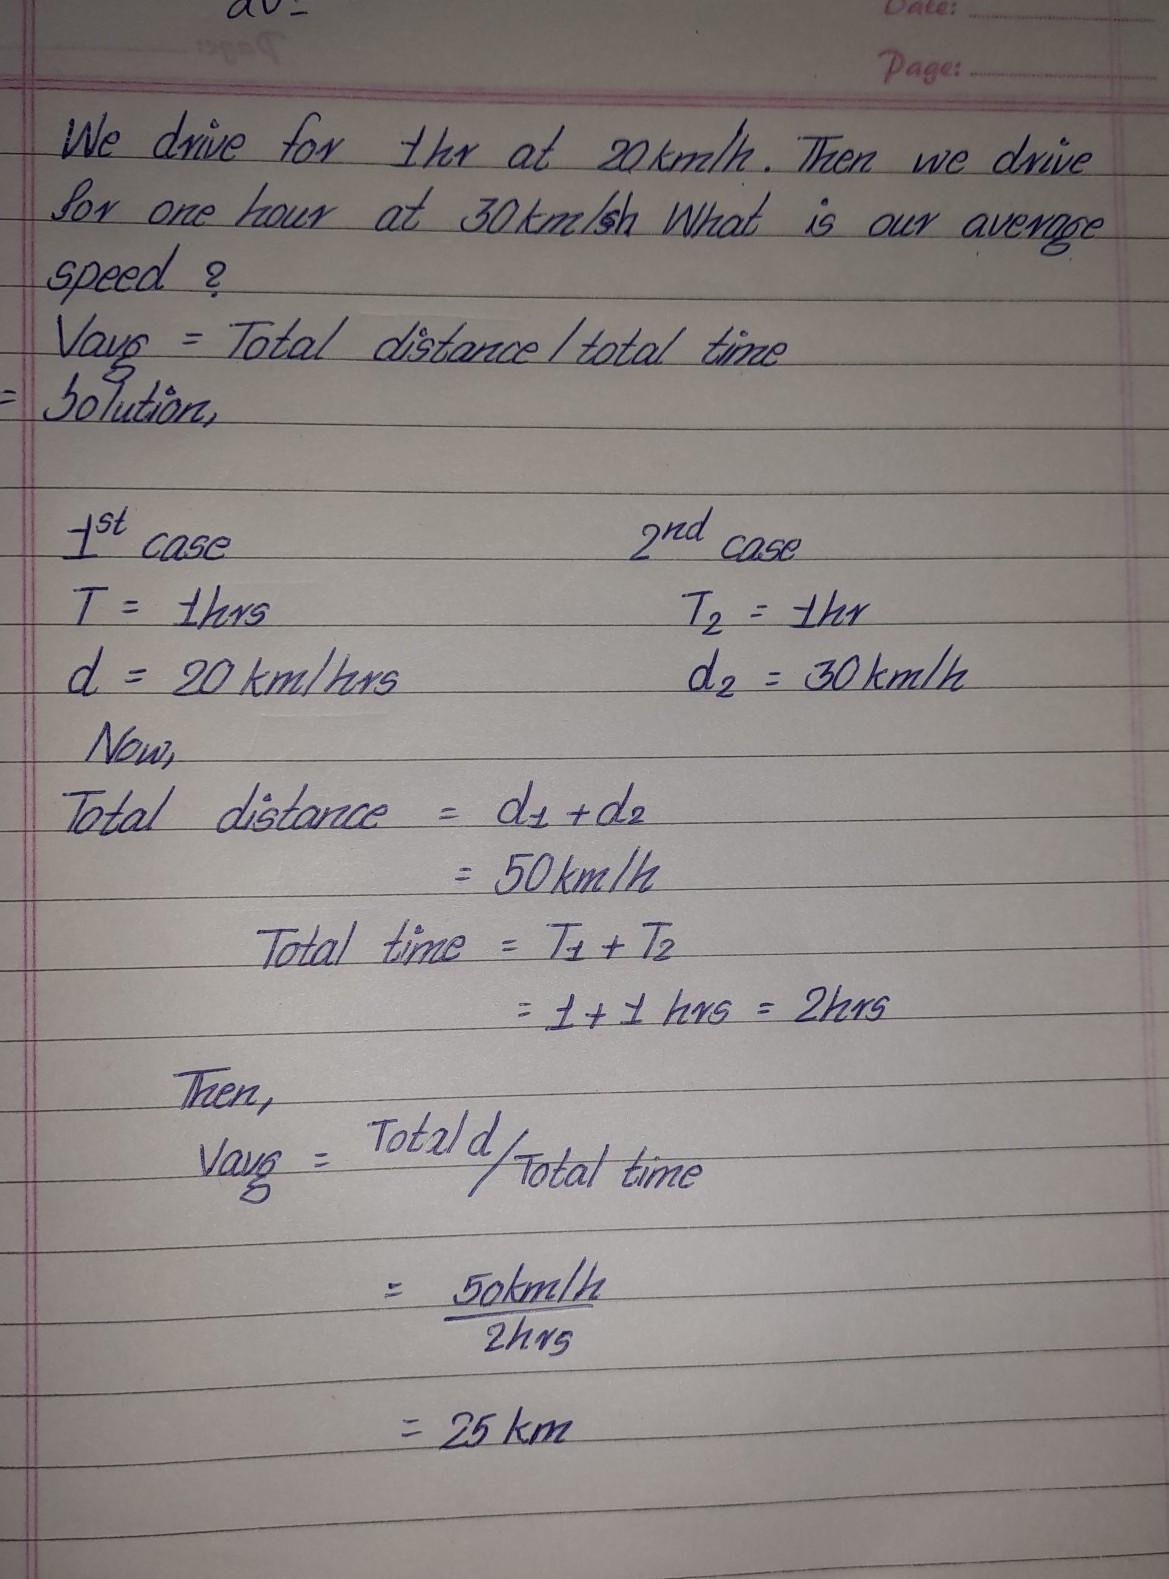 Date:
Page:
We drive for 1hr at 20km/h. Then we drive
for one hour at 30km/h What is our average
speed ?
Vavg = Total distance / total time
= Solution,
1st case 2nd case
T = 1hrs T2 = 1hr
d = 20 km/hrs d2 = 30 km/h
Now,
Total distance = d1 + d2
= 50 km/h
Total time = T1 + T2
= 1 + 1 hrs = 2hrs
Then,
Vavg = Total d / Total time
= 50km/h
2hrs
= 25 km